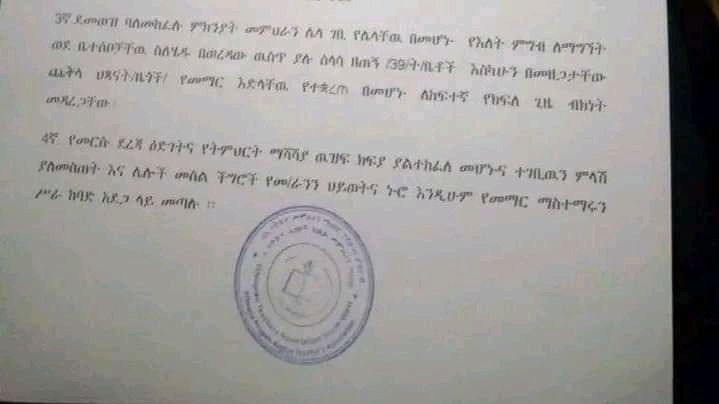 3ኛ ደመወዝ ባለመከፈሉ ምክንያት መምህራን ሌላ ገቢ የሌላቸዉ በመሆኑ የእለት ምግብ ለማግኘት
ወደ ቤተሰቦቻቸዉ ስለሄዱ በወረዳው ዉስጥ ያሉ ስላሳ ዘጠኝ /39/ት/ቤቶች እስካሁን በመዘጋታቸው
ጨቅላ ህጻናት/ዜጎች/ የመማር እድላቸዉ የተቋረጠ በመሆኑ ለከፍተኛ የክፍለ ጊዜ ብክነት
መዳረጋቸው፡
4ኛ የመርሱ ደረጃ ዕድገትና የትምህርት ማሻሻያ ዉዝፍ ክፍያ ያልተከፈለ መሆኑና ተገቢዉን ምላሽ
ያለመስጠት እና ሌሎች መስል ችግሮች የመ/ራንን ህይወትና ኑሮ እንዲሁም የመማር ማስተማሩን
ሥራ ከባድ አደጋ ላይ መጣሉ ፡፡